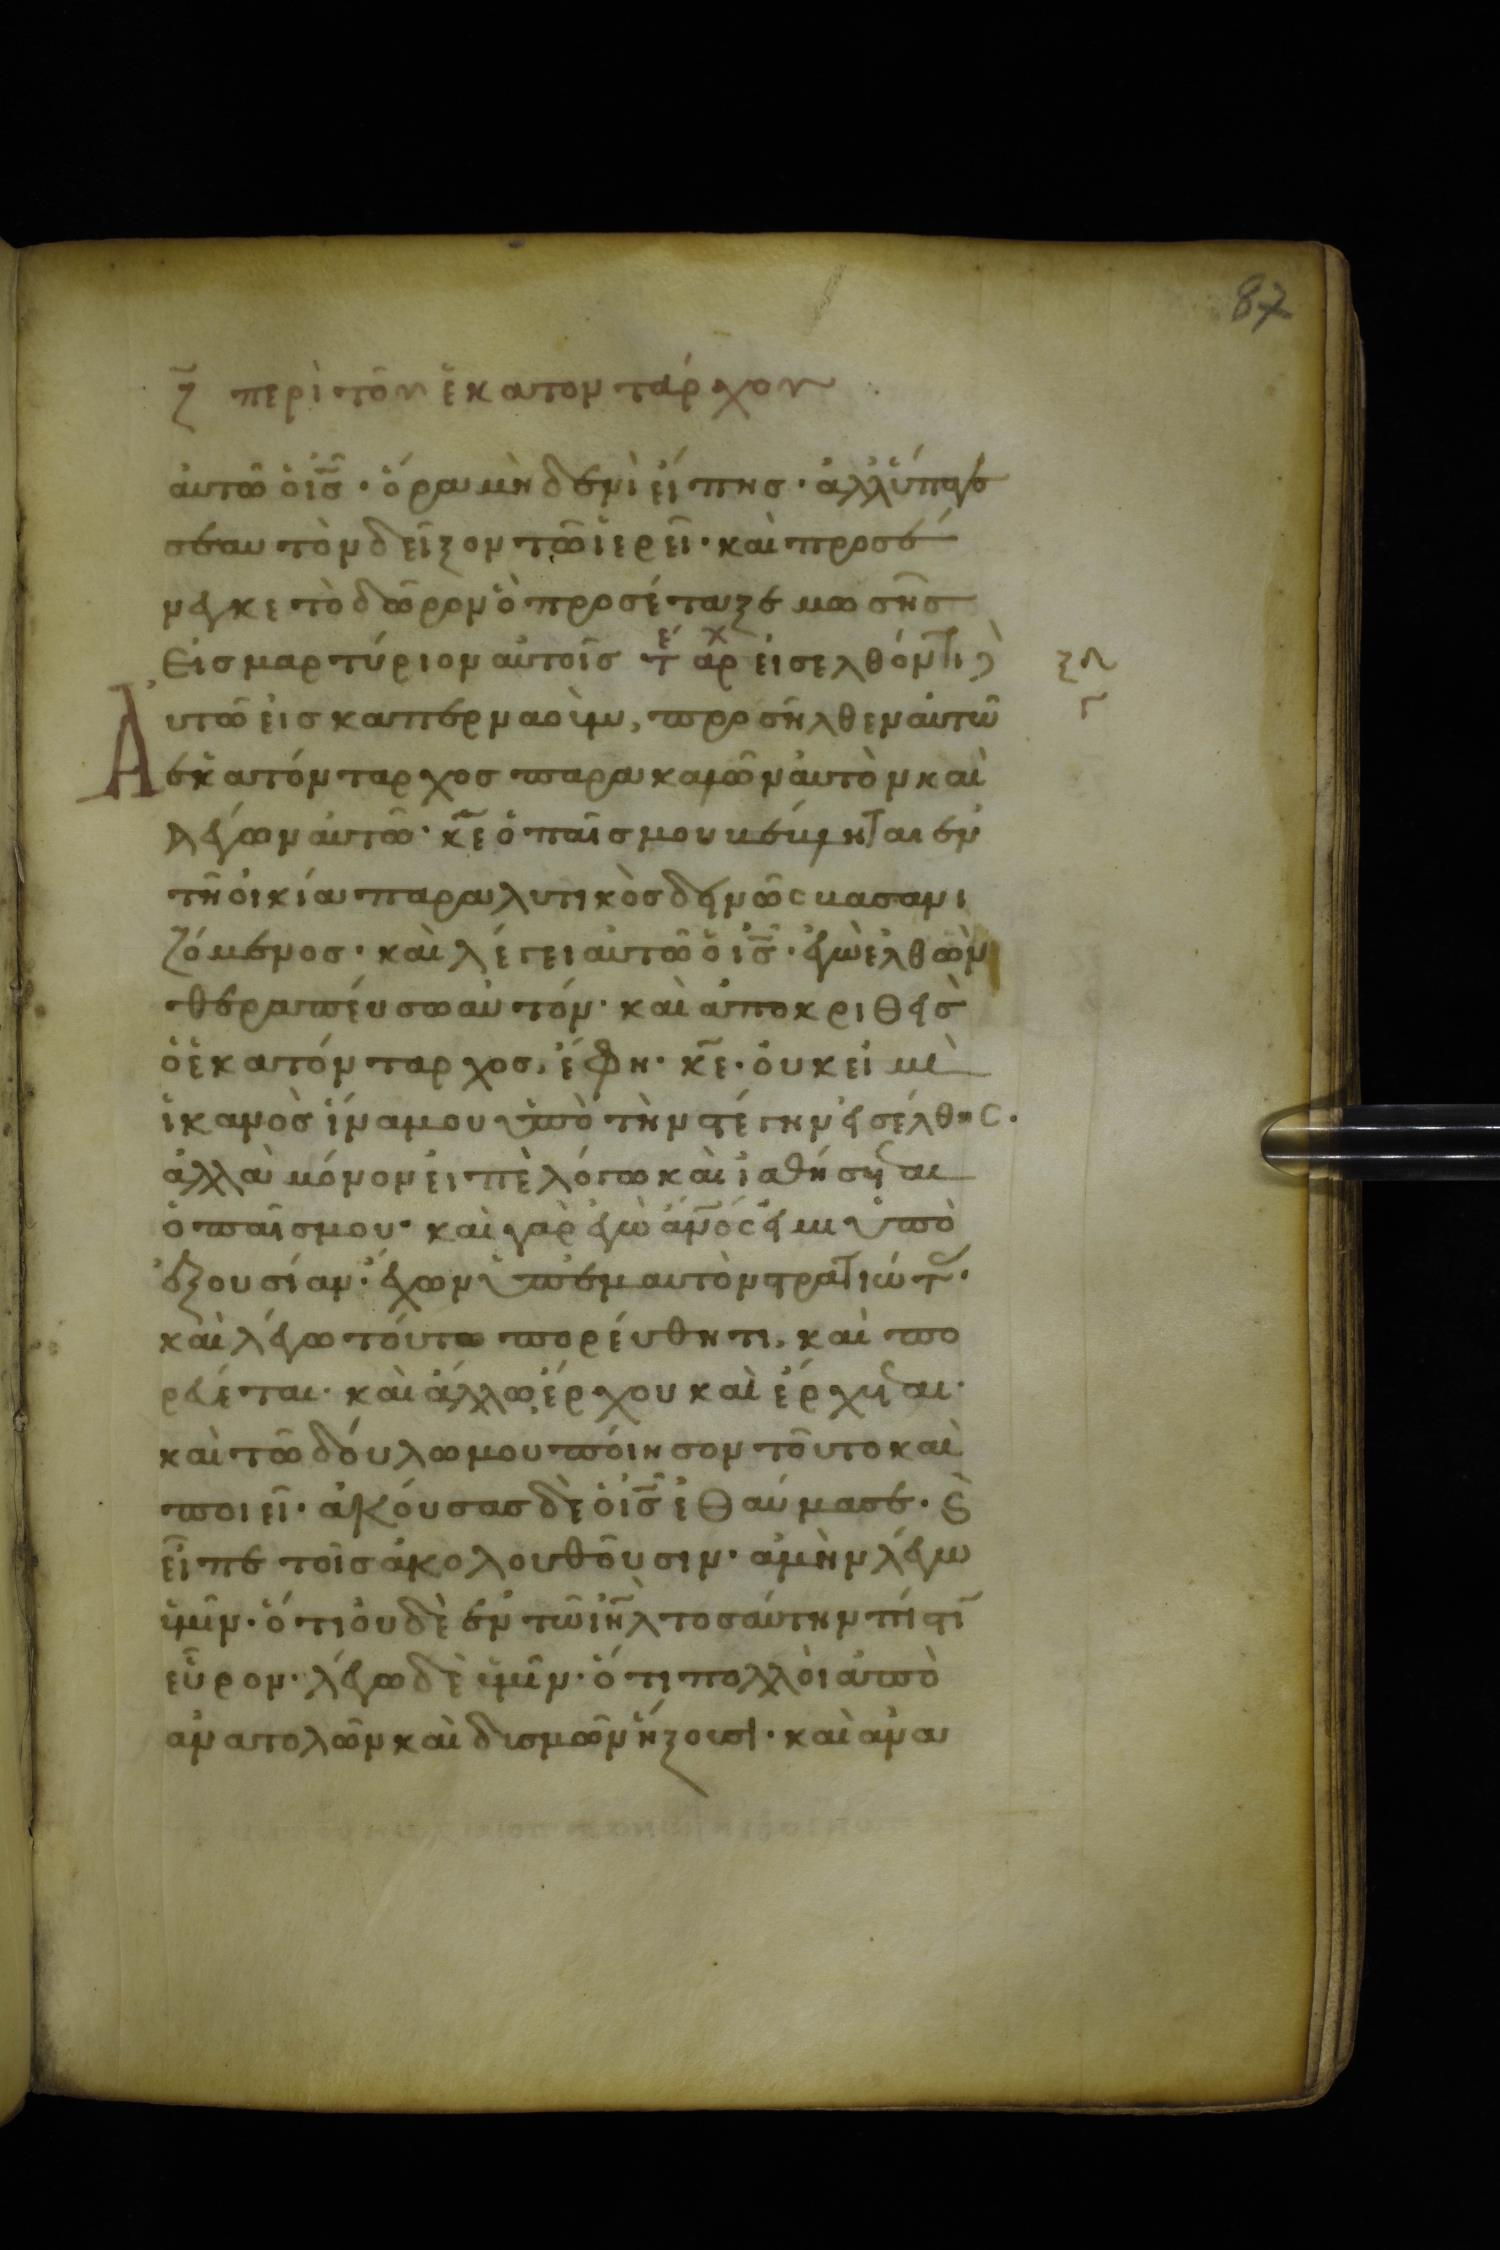 87
ζ περὶ τοῦ ἑκατοντάρχου
αὐτῶ ὁ ις̅· ὅρα μηδενὶ εἴπης· ἀλλ' ὕπαγε
σεαυτὸν δεῖξον τῶ ἱερεῖ· καὶ προσέ
νεγκε τὸ δῶρον ὃ προσέταξε μωσῆς
εἰς μαρτύριον αὐτοῖς τε αρχ εἰσελθόντι δὲ
ζλ
Αὐτῶ εἰς καπερναούμ, προσῆλθεν αὐτῶ
γ
ἑκατόνταρχος παρακαλῶν αὐτὸν καὶ
λέγων αὐτῶ· κ̅ε ὁ παῖς μου βέβληται ἐν
τῆ οἰκία παραλυτικὸς δεινῶς βασανι
ζόμενος· καὶ λέγει αὐτῶ ὁ ις̅· ἐγὼ ἐλθὼν
θεραπεύσω αὐτόν· καὶ ἀποκριθεὶς
ὁ ἑκατόνταρχος, ἔφη· κ̅ε· οὐκ εἰμὶ
ἱκανὸς ἵνα μου ὑπὸ τὴν στέγην εἰσέλθης·
ἀλλὰ μόνον εἰπὲ λόγω καὶ ἰαθήσεται
ὁ παῖς μου· καὶ γὰρ ἐγὼ ἄν̅ος εἰμι ὑπὸ
ἐξουσίαν· ἔχων ὑπ' ἐμαυτὸν στρατιώτ·
καὶ λέγω τούτω πορεύθητι, καὶ πο
ρεύεται· καὶ ἄλλω, ἔρχου καὶ ἔρχεται·
καὶ τῶ δούλω μου ποίησον τοῦτο καὶ
ποιεῖ· ἀκούσας δὲ ὁ ις̅ ἐθαύμασε· ϗ
εἶπε τοῖς ἀκολουθοῦσιν· ἀμὴν λέγω
ὑμῖν· ὅτι οὐδὲ ἐν τῶ ιη̅λ τοσαύτην πίστι̅
εὗρον· λέγω δὲ ὑμῖν· ὅτι πολλοὶ ἀπὸ
ἀνατολῶν καὶ δυσμῶν ἥξουσι· καὶ ἀνα